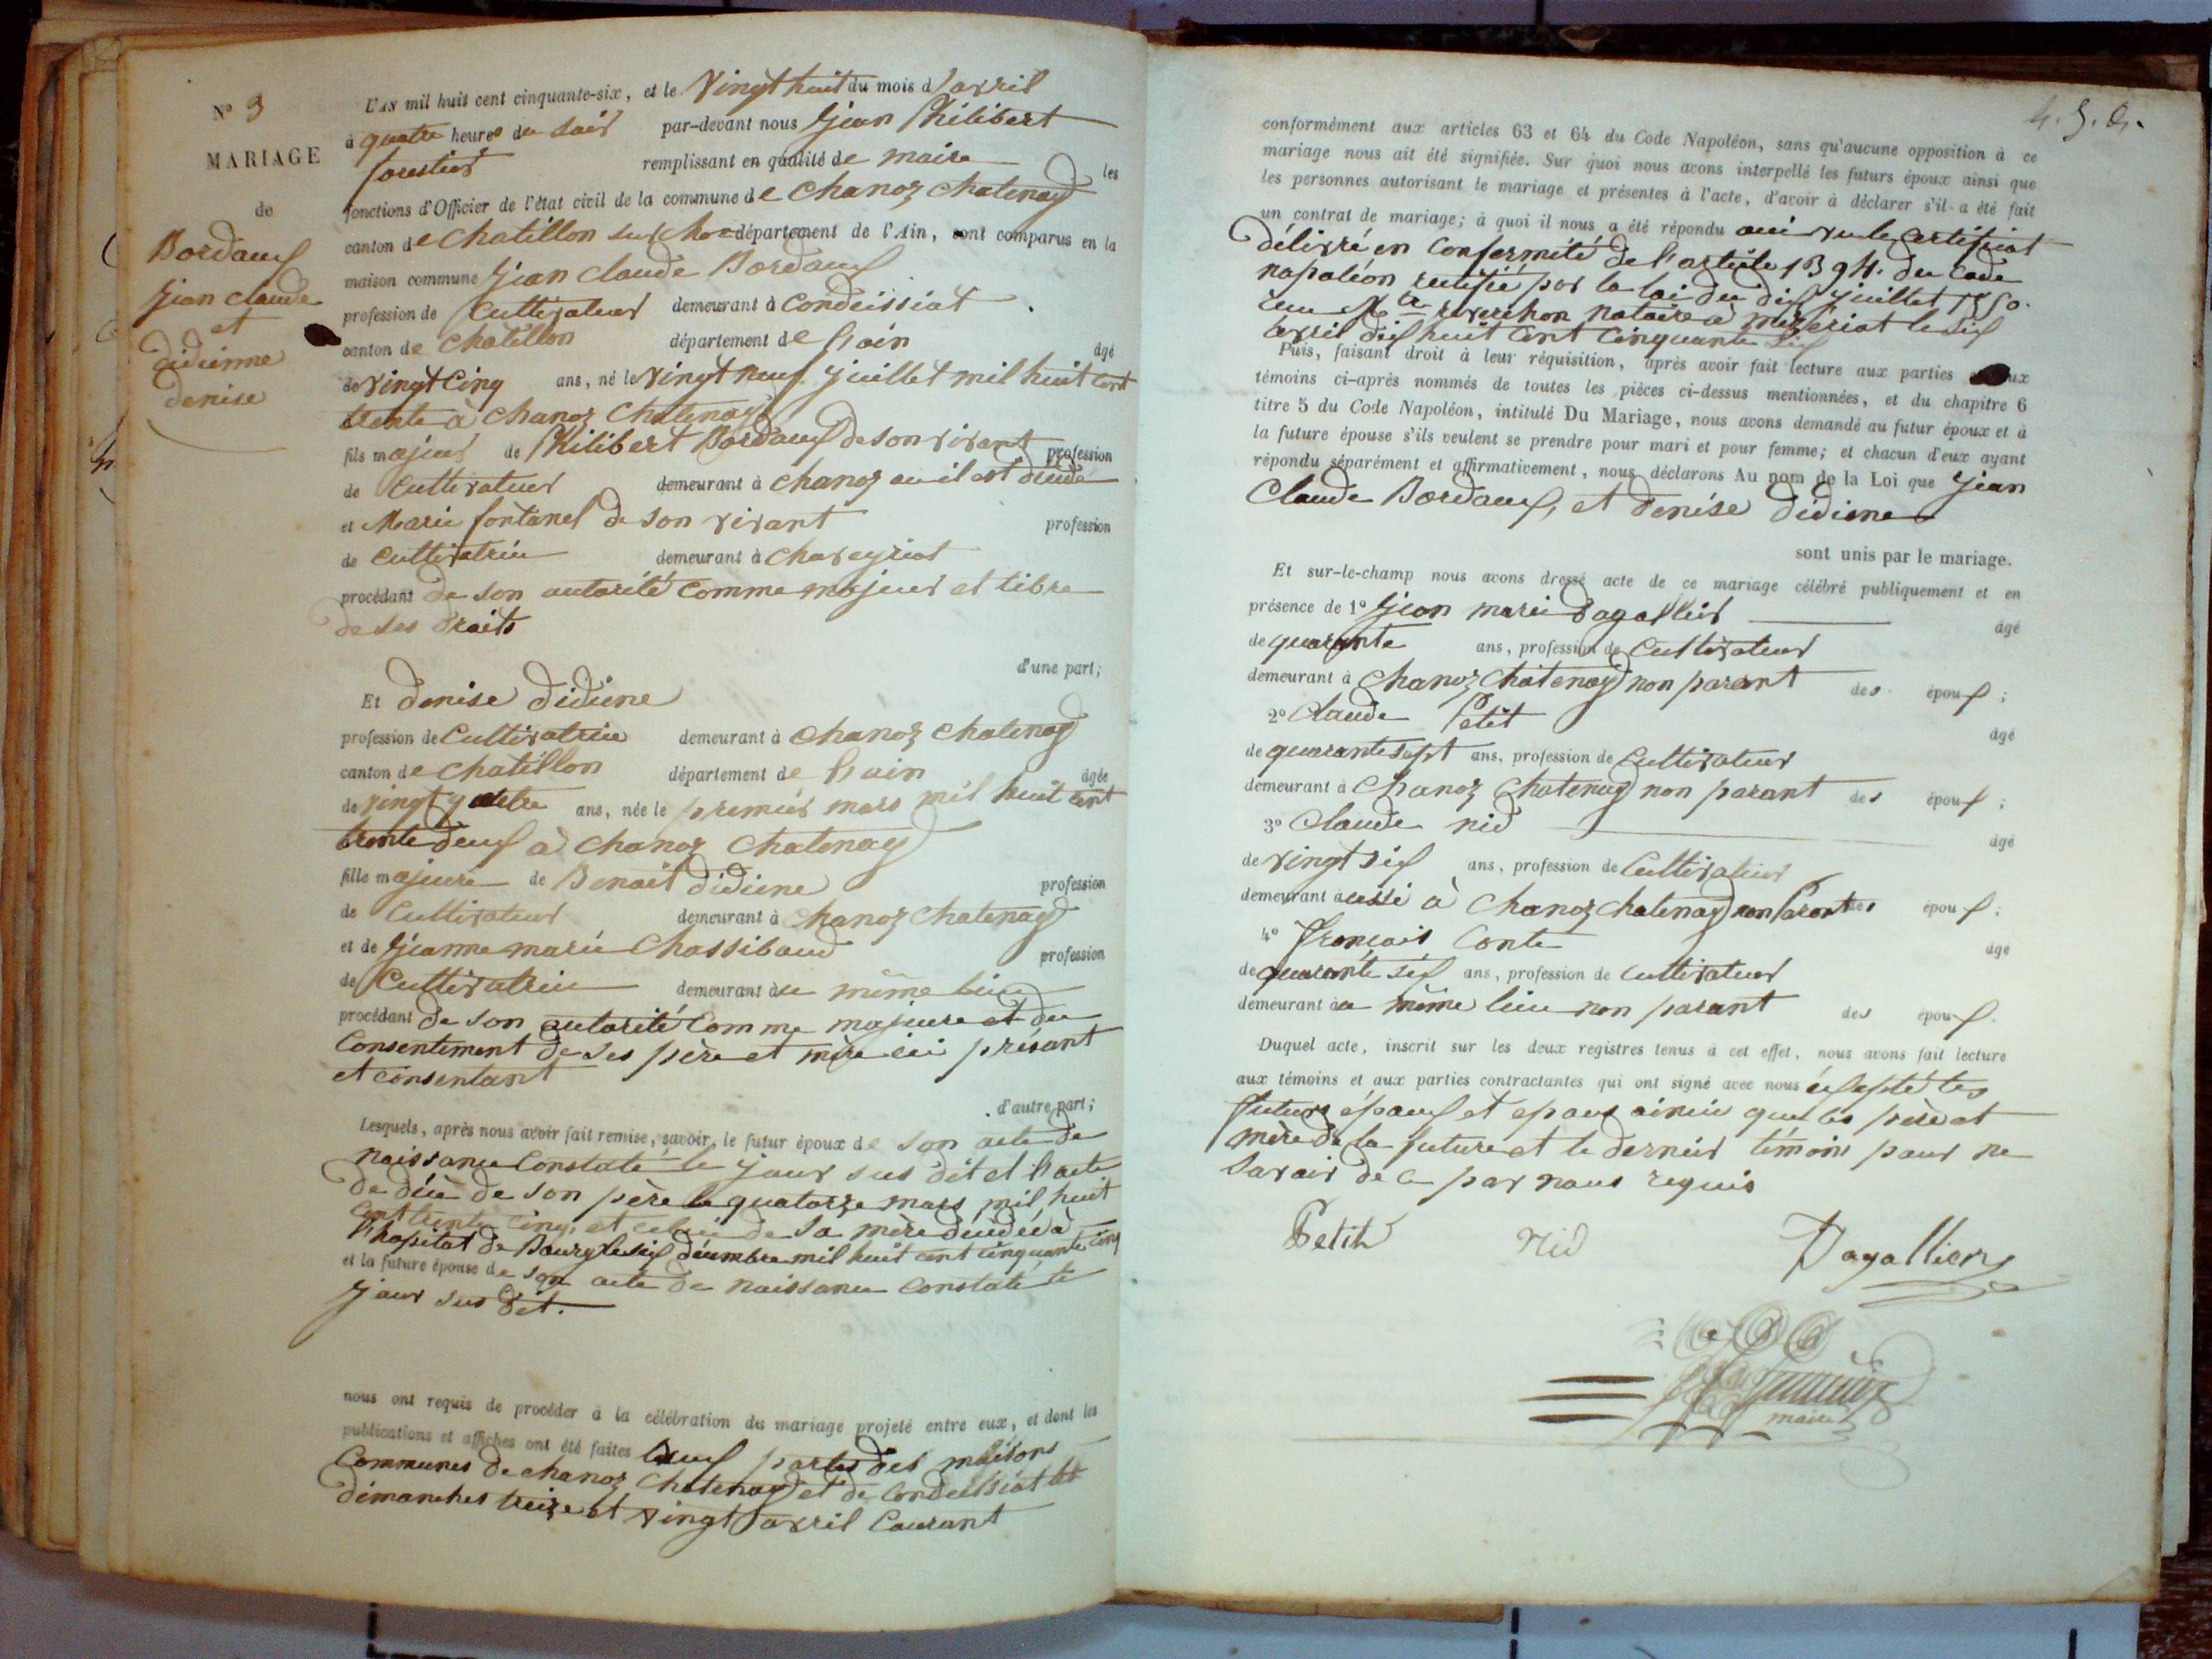 N° 3
MARIAGE
de
Bordauf
Jean claude
et
didienne
denise
L'AN mil huit cent cinquante-six, et le Vingt huit du mois d'avril
à quatre heures du soir par-devant nous Jean Philibert
forestier remplissant en qualité de maire les
fonctions d'Officier de l'état civil de la commune de chanoz chatenay
canton de chatillon sur département de l'Ain, sont comparus en la
maison commune Jean claude Bordauf
profession de Cultivateur demeurant à condeissiat
canton de chatillon département de l'ain âgé
de vingt cinq ans, né le vingt neuf juillet mil huit cent
trente à chanoz chatenay
fils majeur de Philibert Bordauf de son vivant profession
de cultivateur demeurant à chanoz ou il est décédé
et Marie fontanel de son vivant profession
de cultivatrice demeurant à chaveyriat
procédant de son autorité comme majeur et libre
de ses droits
d'une part;
Et denise didiene
profession de Cultivatrice demeurant à chanoz chatenay
canton de chatillon département de l'ain âgée
de vingt quatre ans, née le premier mars mil huit cent
trente deux à chanoz chatenay
fille majeure de Benoit didiene profession
de Cultivateur demeurant à chanoz chatenay
et de Jeanne marie Chassibaud profession
de Cultivatrice demeurant au même lieu
procédant de son autorité comme majeure et du
Consentement de ses père et mère ici présant
et consentant
d'autre part;
Lesquels, après nous avoir fait remise, savoir, le futur époux de son acte de
naissance constaté le jour sus dit et l'acte
de décè de son père le quatorze mars mil huit
cent trente cinq, et celui de sa mère décédée à
l'hopital de Bourg le six décembre mil huit cent cinquante cinq
et la future épouse de son acte de naissance constaté le
jour sus dit.
nous ont requis de procéder à la célébration du mariage projeté entre eux, et dont les
publications et affiches ont été faites aux portes des maisons
Communes de chanoz chatenay et de condeissiat les
dimanches treize et vingt avril Courant
conformément aux articles 63 et 64 du Code Napoléon, sans qu'aucune opposition à ce
mariage nous ait été signifiée. Sur quoi nous avons interpellé les futurs époux ainsi que
les personnes autorisant le mariage et présentes à l'acte, d'avoir à déclarer s'il a été fait
un contrat de mariage; à quoi il nous a été répondu oui vu le certificat
délivré en conformité de l'article 1394. du code
napoléon rectifié par la loi du dix juillet 1850.
notaire à mezeriat le six
avril dix huit cent cinquante six
Puis, faisant droit à leur réquisition, après avoir fait lecture aux parties et aux
témoins ci-après nommés de toutes les pièces ci-dessus mentionnées, et du chapitre 6
titre 5 du Code Napoléon, intitulé Du Mariage, nous avons demandé au futur époux et à
la future épouse s'ils veulent se prendre pour mari et pour femme; et chacun d'eux ayant
répondu séparément et affirmativement, nous déclarons Au nom de la Loi que Jean
Claude Bordauf, et denise didiene
sont unis par le mariage.
Et sur-le-champ nous avons dressé acte de ce mariage célébré publiquement et en
présence de 1° Jean marie dagallier âgé
de quarante ans, profession de Cultivateur
demeurant à chanoz chatenay non parant des époux;
2° Claude Petit âgé
de quarante sept ans, profession de Cultivateur
demeurant à chanoz chatenay non parant des époux;
3° Claude nid âgé
de vingt six ans, profession de Cultivateur
demeurant aussi à chanoz chatenay non parant des époux;
4° François Conte âgé
de quarante six ans, profession de cultivateur
demeurant au même lieu non parant des époux.
Duquel acte, inscrit sur les deux registres tenus à cet effet, nous avons fait lecture
aux témoins et aux parties contractantes qui ont signé avec nous excepté les
future époux et epous ainsie que les père et
mère de la future et le dernier témoins pour ne
savoir de ce par nous requis
Petit Nid Dagallier
maire